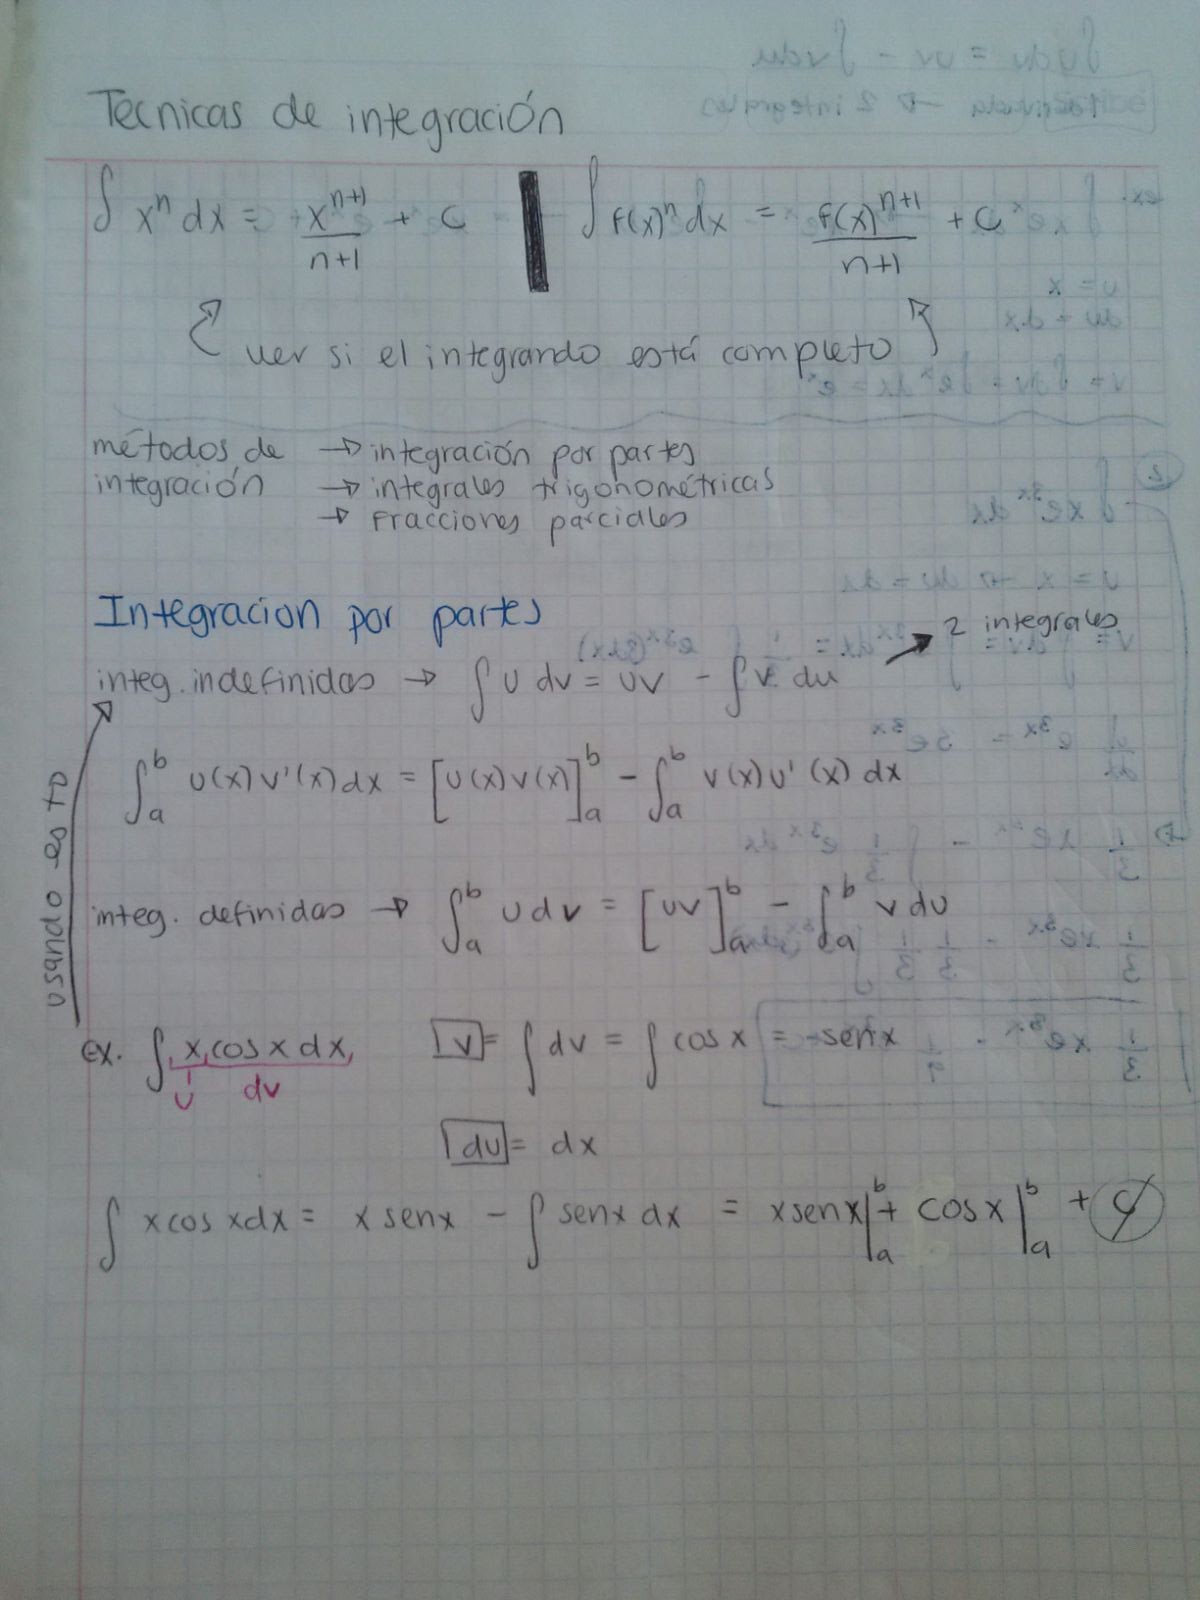 Tecnicas de integración
∫ xⁿ dx = xⁿ⁺¹/n+1 + C | ∫ f(x)ⁿ dx = f(x)ⁿ⁺¹/n+1 + C
ver si el integrando está completo
métodos de → integración por partes
integración → integrales trigonométricas
→ Fracciones parciales
Integracion por partes
2 integrales
integ. indefinidas → ∫ u dv = uv - ∫ v du
∫ₐᵇ u(x) v'(x) dx = [u(x) v(x)]ₐᵇ - ∫ₐᵇ v(x) u'(x) dx
usando esto
integ. definidas → ∫ₐᵇ u dv = [uv]ₐᵇ - ∫ₐᵇ v du
ex. ∫ x cos x dx v = ∫ dv = ∫ cos x = senx
u dv
du = dx
∫ x cos x dx = x senx - ∫ senx dx = x senx|ₐᵇ + cos x|ₐᵇ + C